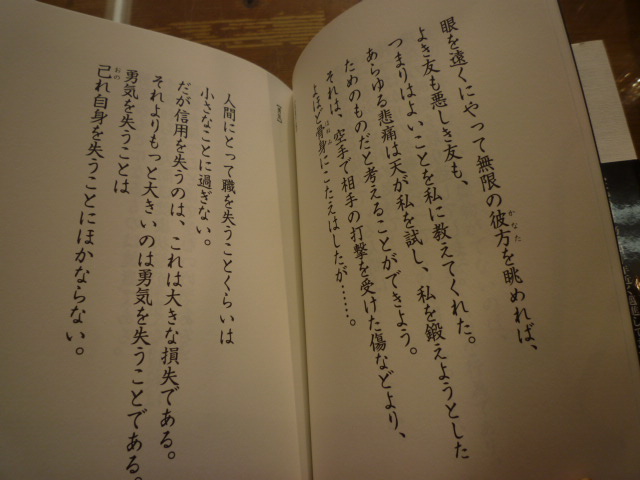 眼を遠くにやって無限の彼方を眺めれば、
かなた
よき友も悪しき友も、
つまりはよいことを私に教えてくれた。
あらゆる悲痛は天が私を試し、私を鍛えようとした
ためのものだと考えることができよう。
それは、空手で相手の打撃を受けた傷などより、
よほど骨身にこたえはしたが……。
人間にとって職を失うことくらいは
小さなことに過ぎない。
だが信用を失うのは、これは大きな損失である。
それよりもっと大きいのは勇気を失うことである。
勇気を失うことは
己れ自身を失うことにほかならない。
おの